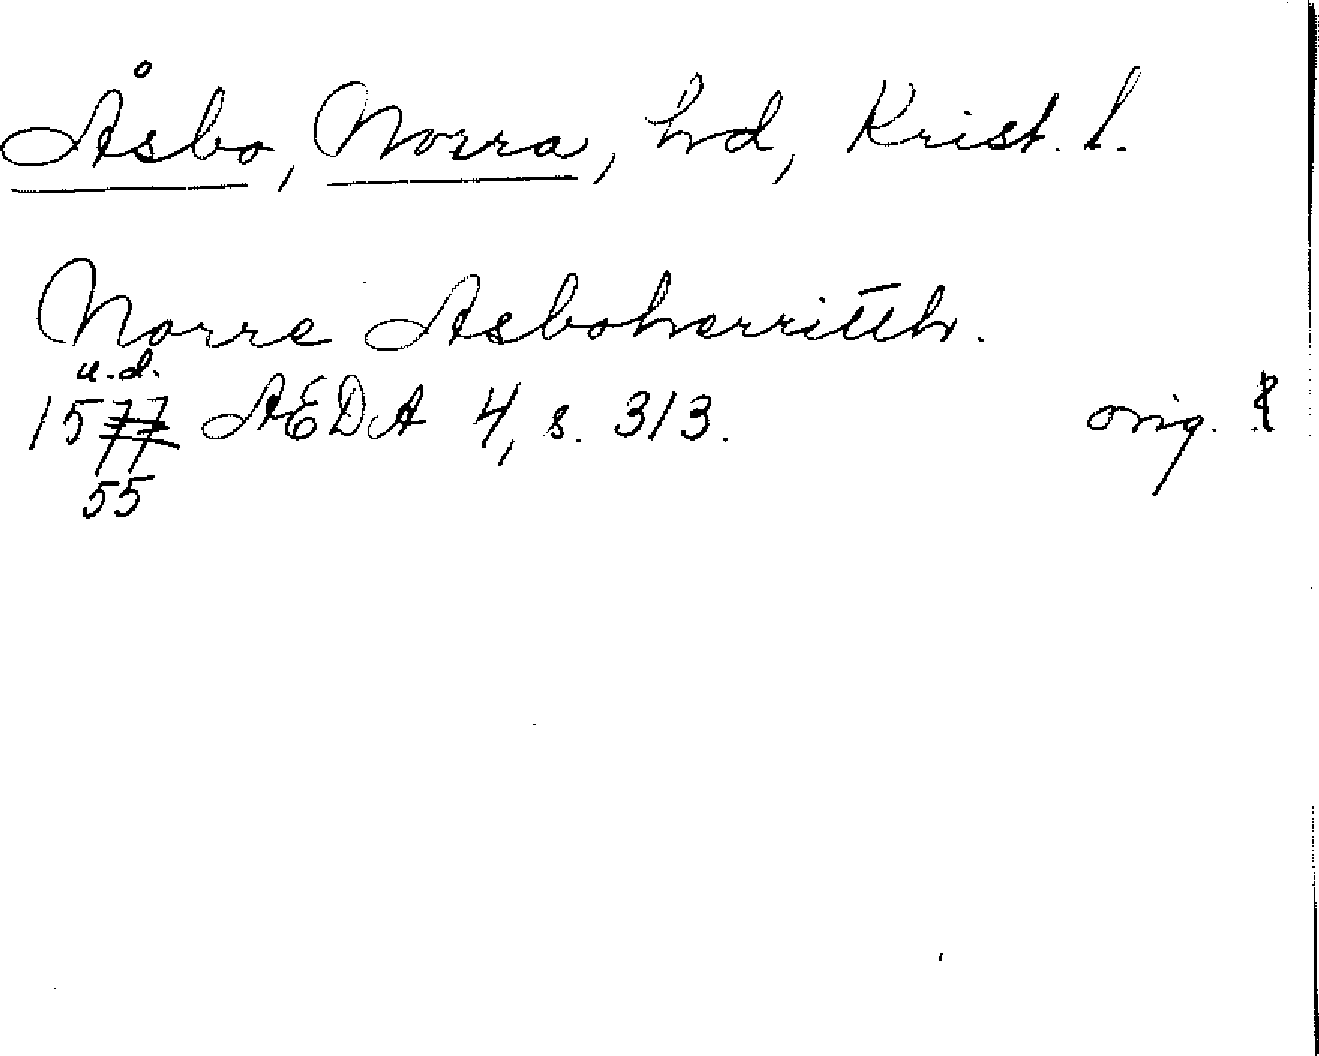 Åsbo, Norra, hd, Krist. l.
Norre Asboherritth.
u.d.
1577 AEDA 4, s. 313. orig.
55